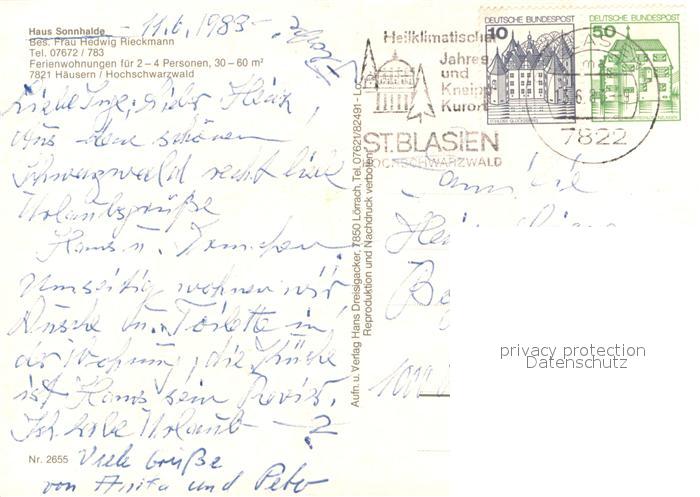 Haus Sonnhalde - 11.6.1983 -
Bes. Frau Hedwig Rieckmann
Tel. 07672 / 783
Ferienwohnungen für 2 – 4 Personen, 30 – 60 m²
7821 Häusern / Hochschwarzwald
Liebe Inge, lieber Heinz,
Aus dem schönen
Schwarzwald recht liebe
Urlaubsgrüße
Hans u.
Umseitig wohnen wir
Dusche u. Toilette in
der Wohnung, die Küche
ist Hans sein Revier.
Ich habe Urlaub – 2
Nr. 2655 Viele Grüße
von Anita und Peter
Aufn. u. Verlag Hans Dreisigacker, 7850 Lörrach, Tel. 07621/82491 - Lo
Reproduktion und Nachdruck verboten
Heilklimatische
Jahres
und
Kneipp
Kurort
ST. BLASIEN
HOCHSCHWARZWALD
10
DEUTSCHE BUNDESPOST
SCHLOSS GLÜCKSBURG
50
DEUTSCHE BUNDESPOST
7822
Familie
1000
privacy protection
Datenschutz